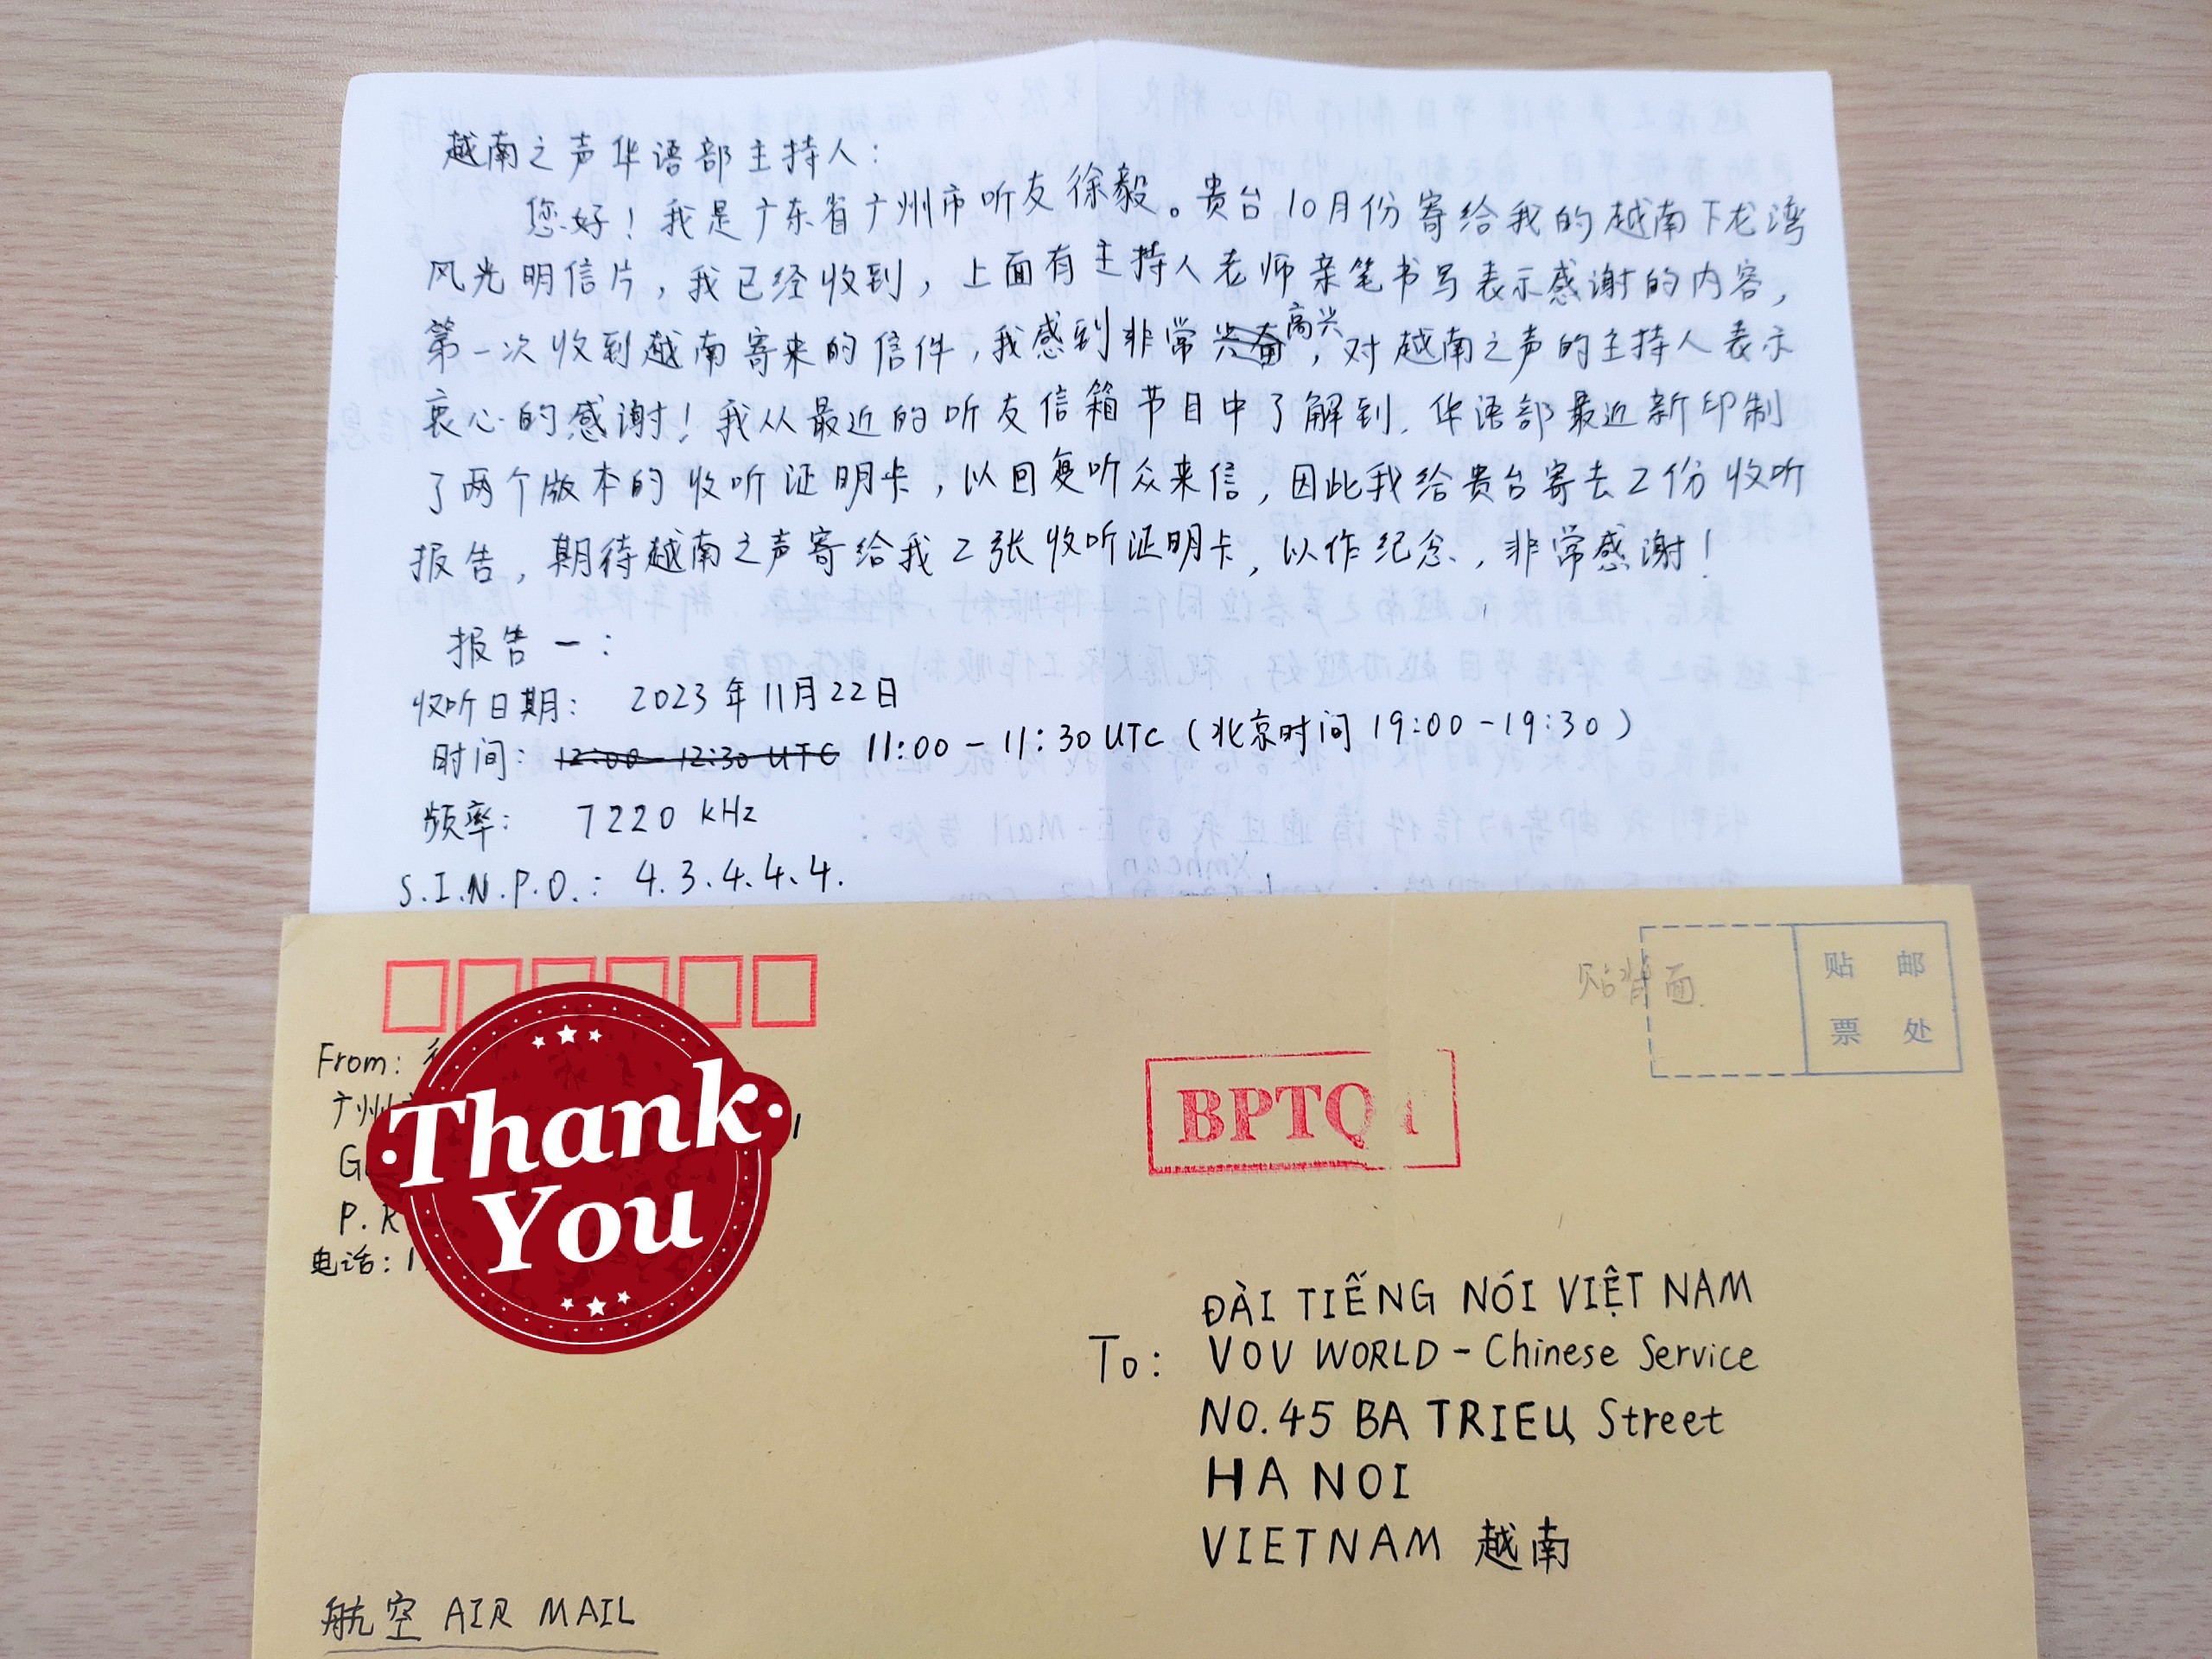 越南之声华语部主持人:
您好!我是广东省广州市听友徐毅。贵台10月份寄给我的越南下龙湾
风光明信片,我已经收到,上面有主持人老师亲笔书写表示感谢的内容,
第一次收到越南寄来的信件,我感到非常高兴,对越南之声的主持人表示
衷心的感谢!我从最近的听友信箱节目中了解到,华语部最近新印制
了两个版本的收听证明卡,以回复听众来信,因此我给贵台寄去2份收听
报告,期待越南之声寄给我2张收听证明卡,以作纪念,非常感谢!
报告一:
收听日期: 2023年11月22日
时间: 12:00-12:30 UTC 11:00-11:30 UTC (北京时间 19:00-19:30)
频率: 7220 kHz
S.I.N.P.O.: 4.3.4.4.4.
贴背面
贴 邮
票 处
From:
广州
P.R
电话:1
Thank
You
BPTQ
ĐÀI TIẾNG NÓI VIỆT NAM
To: VOV WORLD - Chinese Service
NO.45 BA TRIEU Street
HA NOI
VIETNAM 越南
航空 AIR MAIL